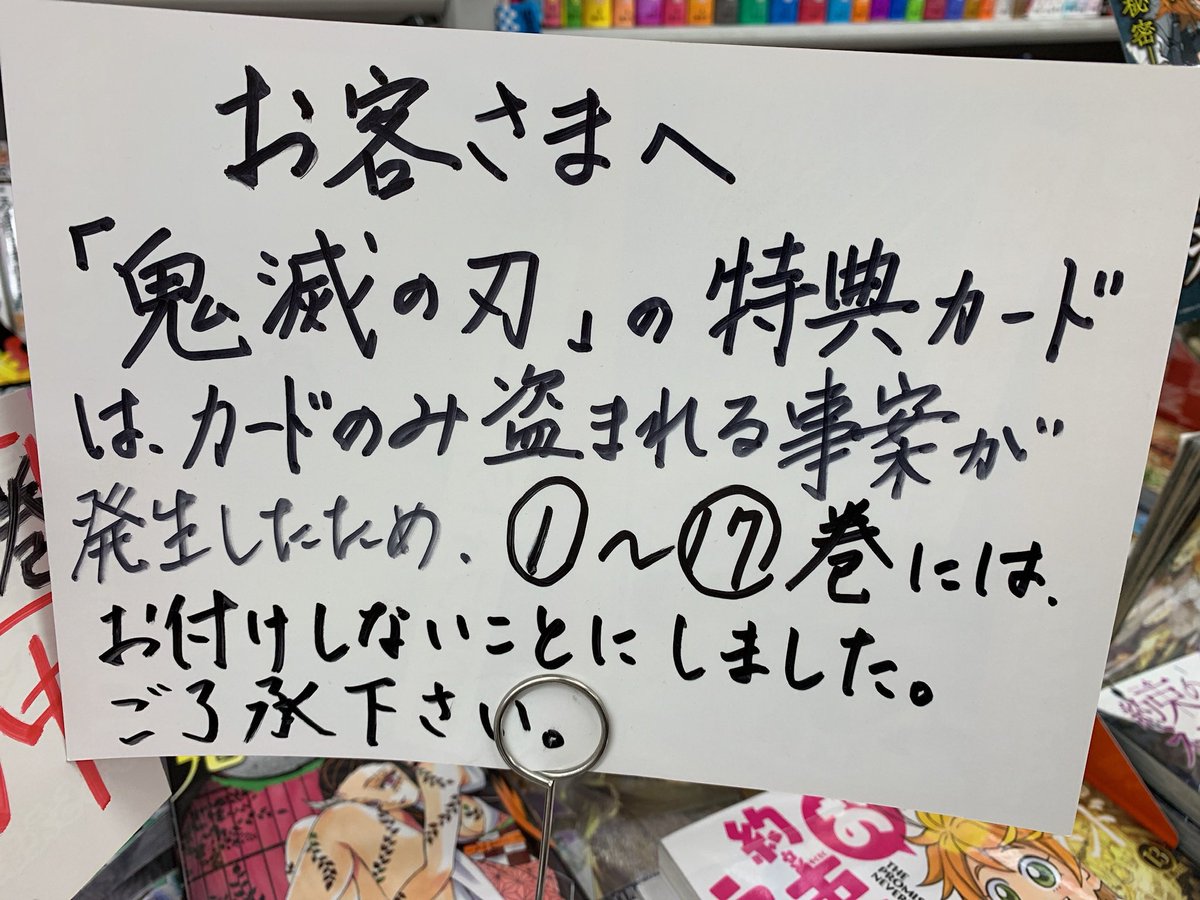 お客さまへ
「鬼滅の刃」の特典カード
は、カードのみ盗まれる事案が
発生したため、①～⑰巻には、
お付けしないことにしました。
ご了承下さい。
秘密
巻
約
THE
PROMI
NEVER
13